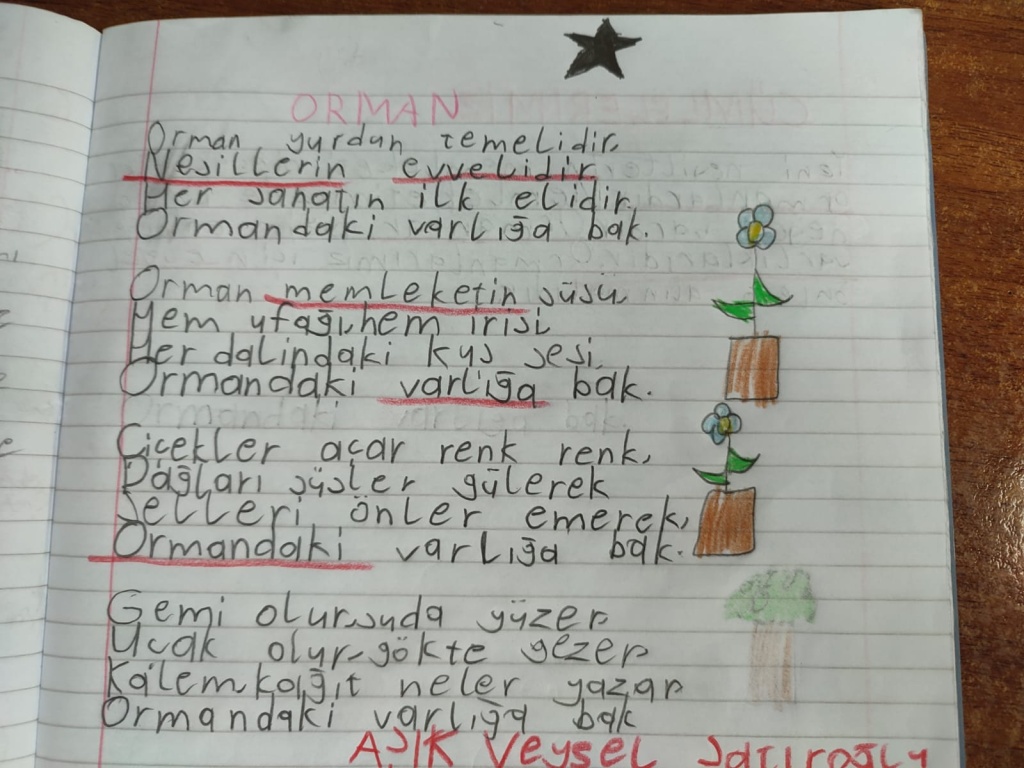 ORMAN
Orman yurdun temelidir.
Nesillerin evvelidir.
Her sanatın ilk elidir.
Ormandaki varlığa bak.
Orman memleketin süsü
Hem ufağı, hem irisi
Her dalindaki kuş sesi
Ormandaki varlığa bak.
Çiçekler açar renk renk,
Dağları süsler gülerek
Selleri önler emerek,
Ormandaki varlığa bak.
Gemi olur suda yüzer
Uçak olur gökte gezer
Kalem kağıt neler yazar
Ormandaki varlığa bak
AŞIK Veysel Şatıroğlu